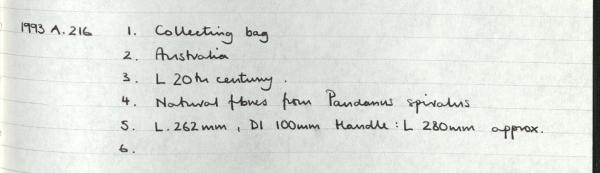 1993 A.216 1. Collecting bag
2. Australia
3. L 20th century.
4. Natural fibres from Pandanus spiralis
5. L. 262mm, DI 100mm Handle: L 280mm approx.
6.